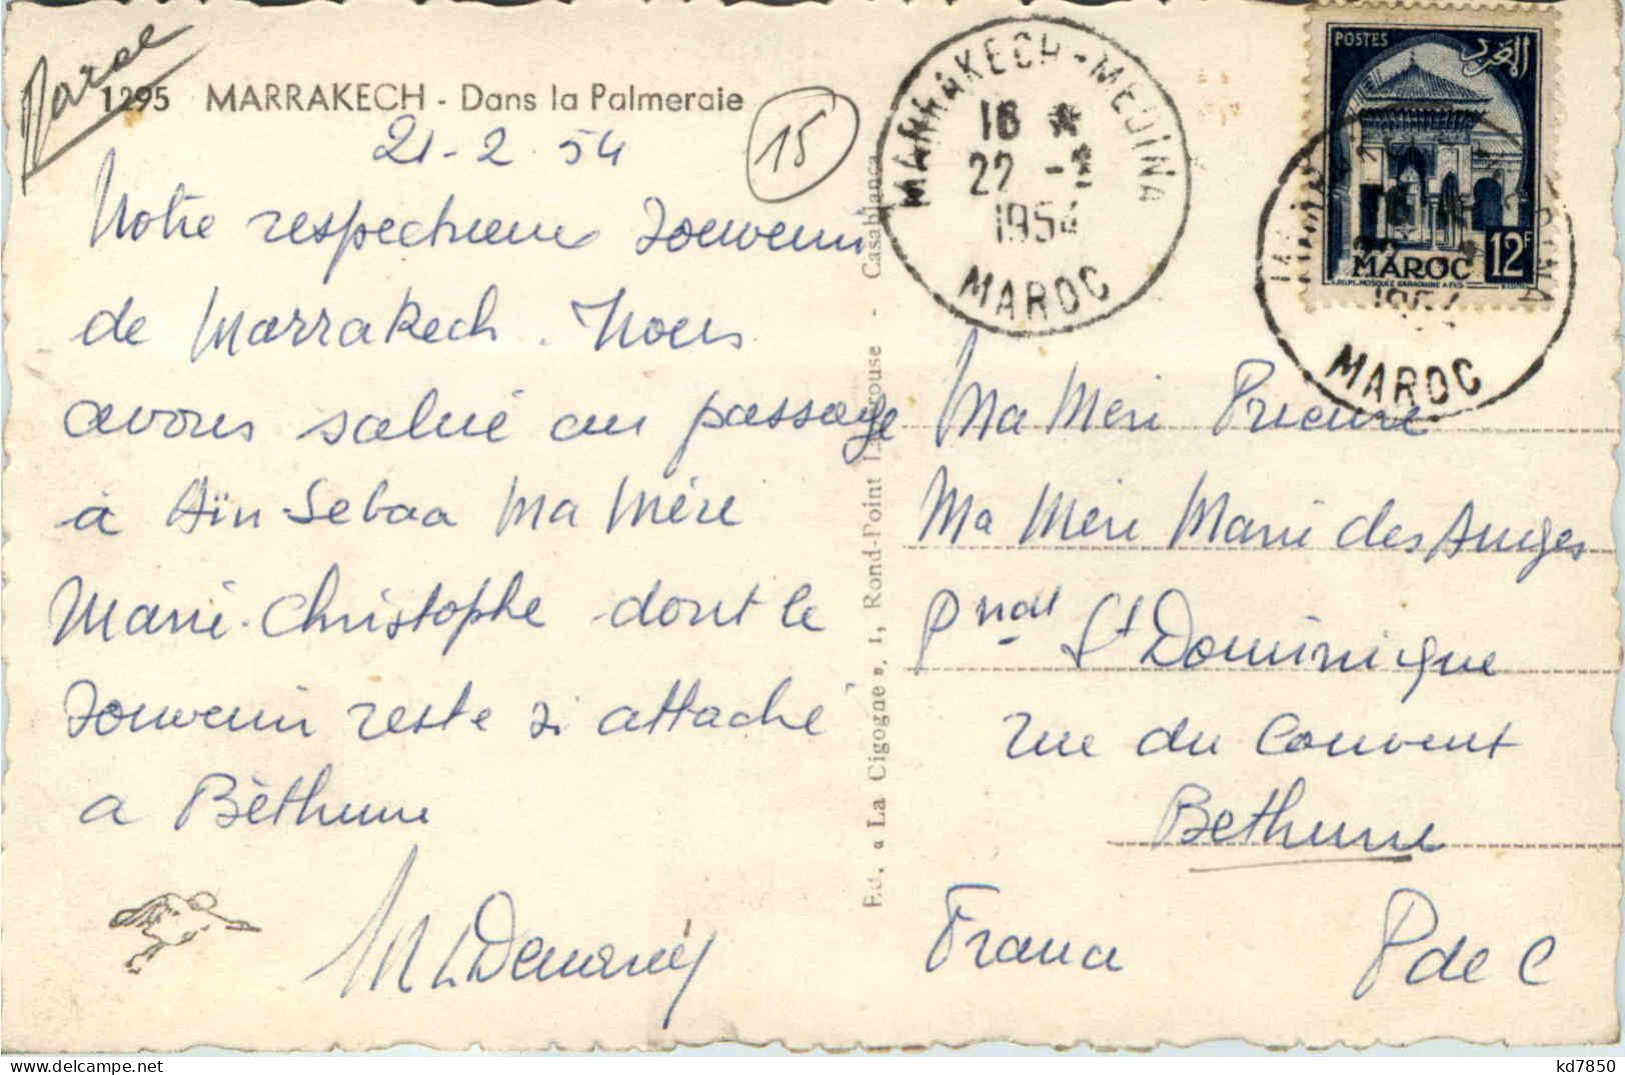 Maroc
1295 MARRAKECH - Dans la Palmeraie
21-2.54
15
Notre respectueux souvenir
de Marrakech. Nous
avons salué au passage
à Aïn-Sebaa Ma Mère
Marie-Christophe dont le
souvenir reste si attaché
a Béthune
Ed. « La Cigogne », 1, Rond-Point - Casablanca
MARRAKECH-MEDINA
16 *
22 -2
1954
MAROC
POSTES
المغرب
MAROC
12F
1954
MAROC
Ma Mère Prieure
Ma Mère Marie des Anges
Pnat St Dominique
rue du Couvent
Bethune
France P de C
kd7850